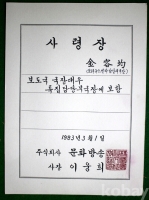 사령장
金容均
보도국 국장대우
특집담당부국장에 보함
1983年 3月 1日
주식회사 문화방송
사장 이웅희
kobay